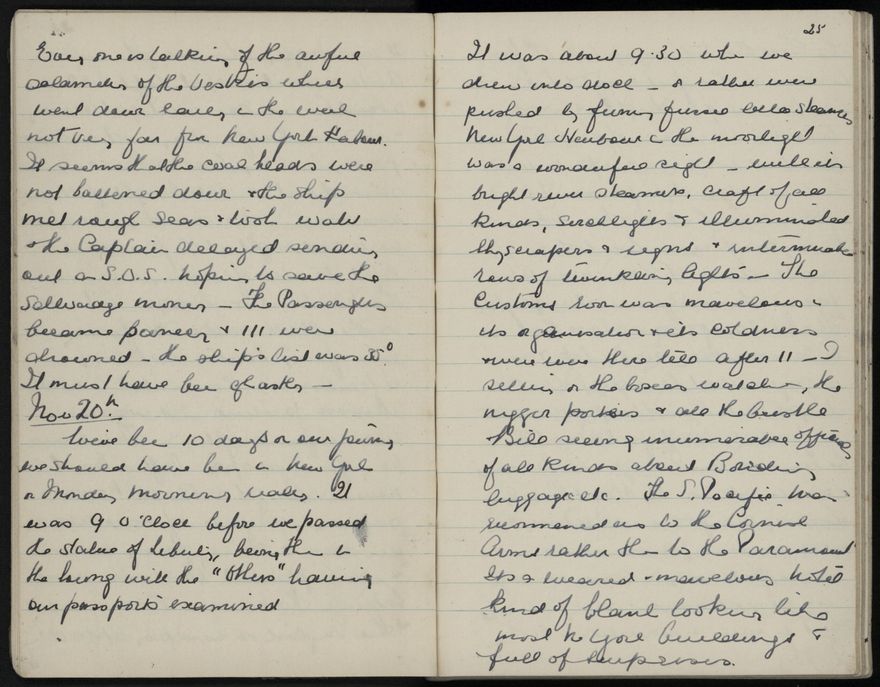 Every one is talking of the awful
calamity of the Vestris which
went down early in the week
not very far from New York Harbour.
It seems that the coal heads were
not battened down & the ship
met rough seas & took water
& the Captain delayed sending
out an S.O.S. hoping to save the
Sallvage money — The Passengers
became panicky & 111 were
drowned — the ship's list was 35°.
It must have been ghastly —
Nov 20th
We've been 10 days on our journey
we should have been in New York
on Monday morning
It
was 9 o'clock before we passed
the statue of Liberty, being then in
the lounge with the "Others" having
our passports examined
25
It was about 9.30 when we
drew into dock — or rather were
pushed by funny little Steamers
New York Harbour in the moonlight
was a wonderful sight — with its
bright river steamers, craft of all
kinds, Searchlights & illuminated
skyscrapers & signs & interminable
rows of twinkling lights — The
Customs room was marvelous in
its organisation & its coldness
& we were there till after 11 — I
sitting on the boxes watching, the
nigger porters & all the bustle
& Bill seeing innumerable officials
of all kinds about Bonding
luggage etc. The S. Pacific man
recommended us to the
Arms rather than to the Paramount
Its a weird & marvelous hotel
kind of blank looking like
most N York buildings &
full of surprises.